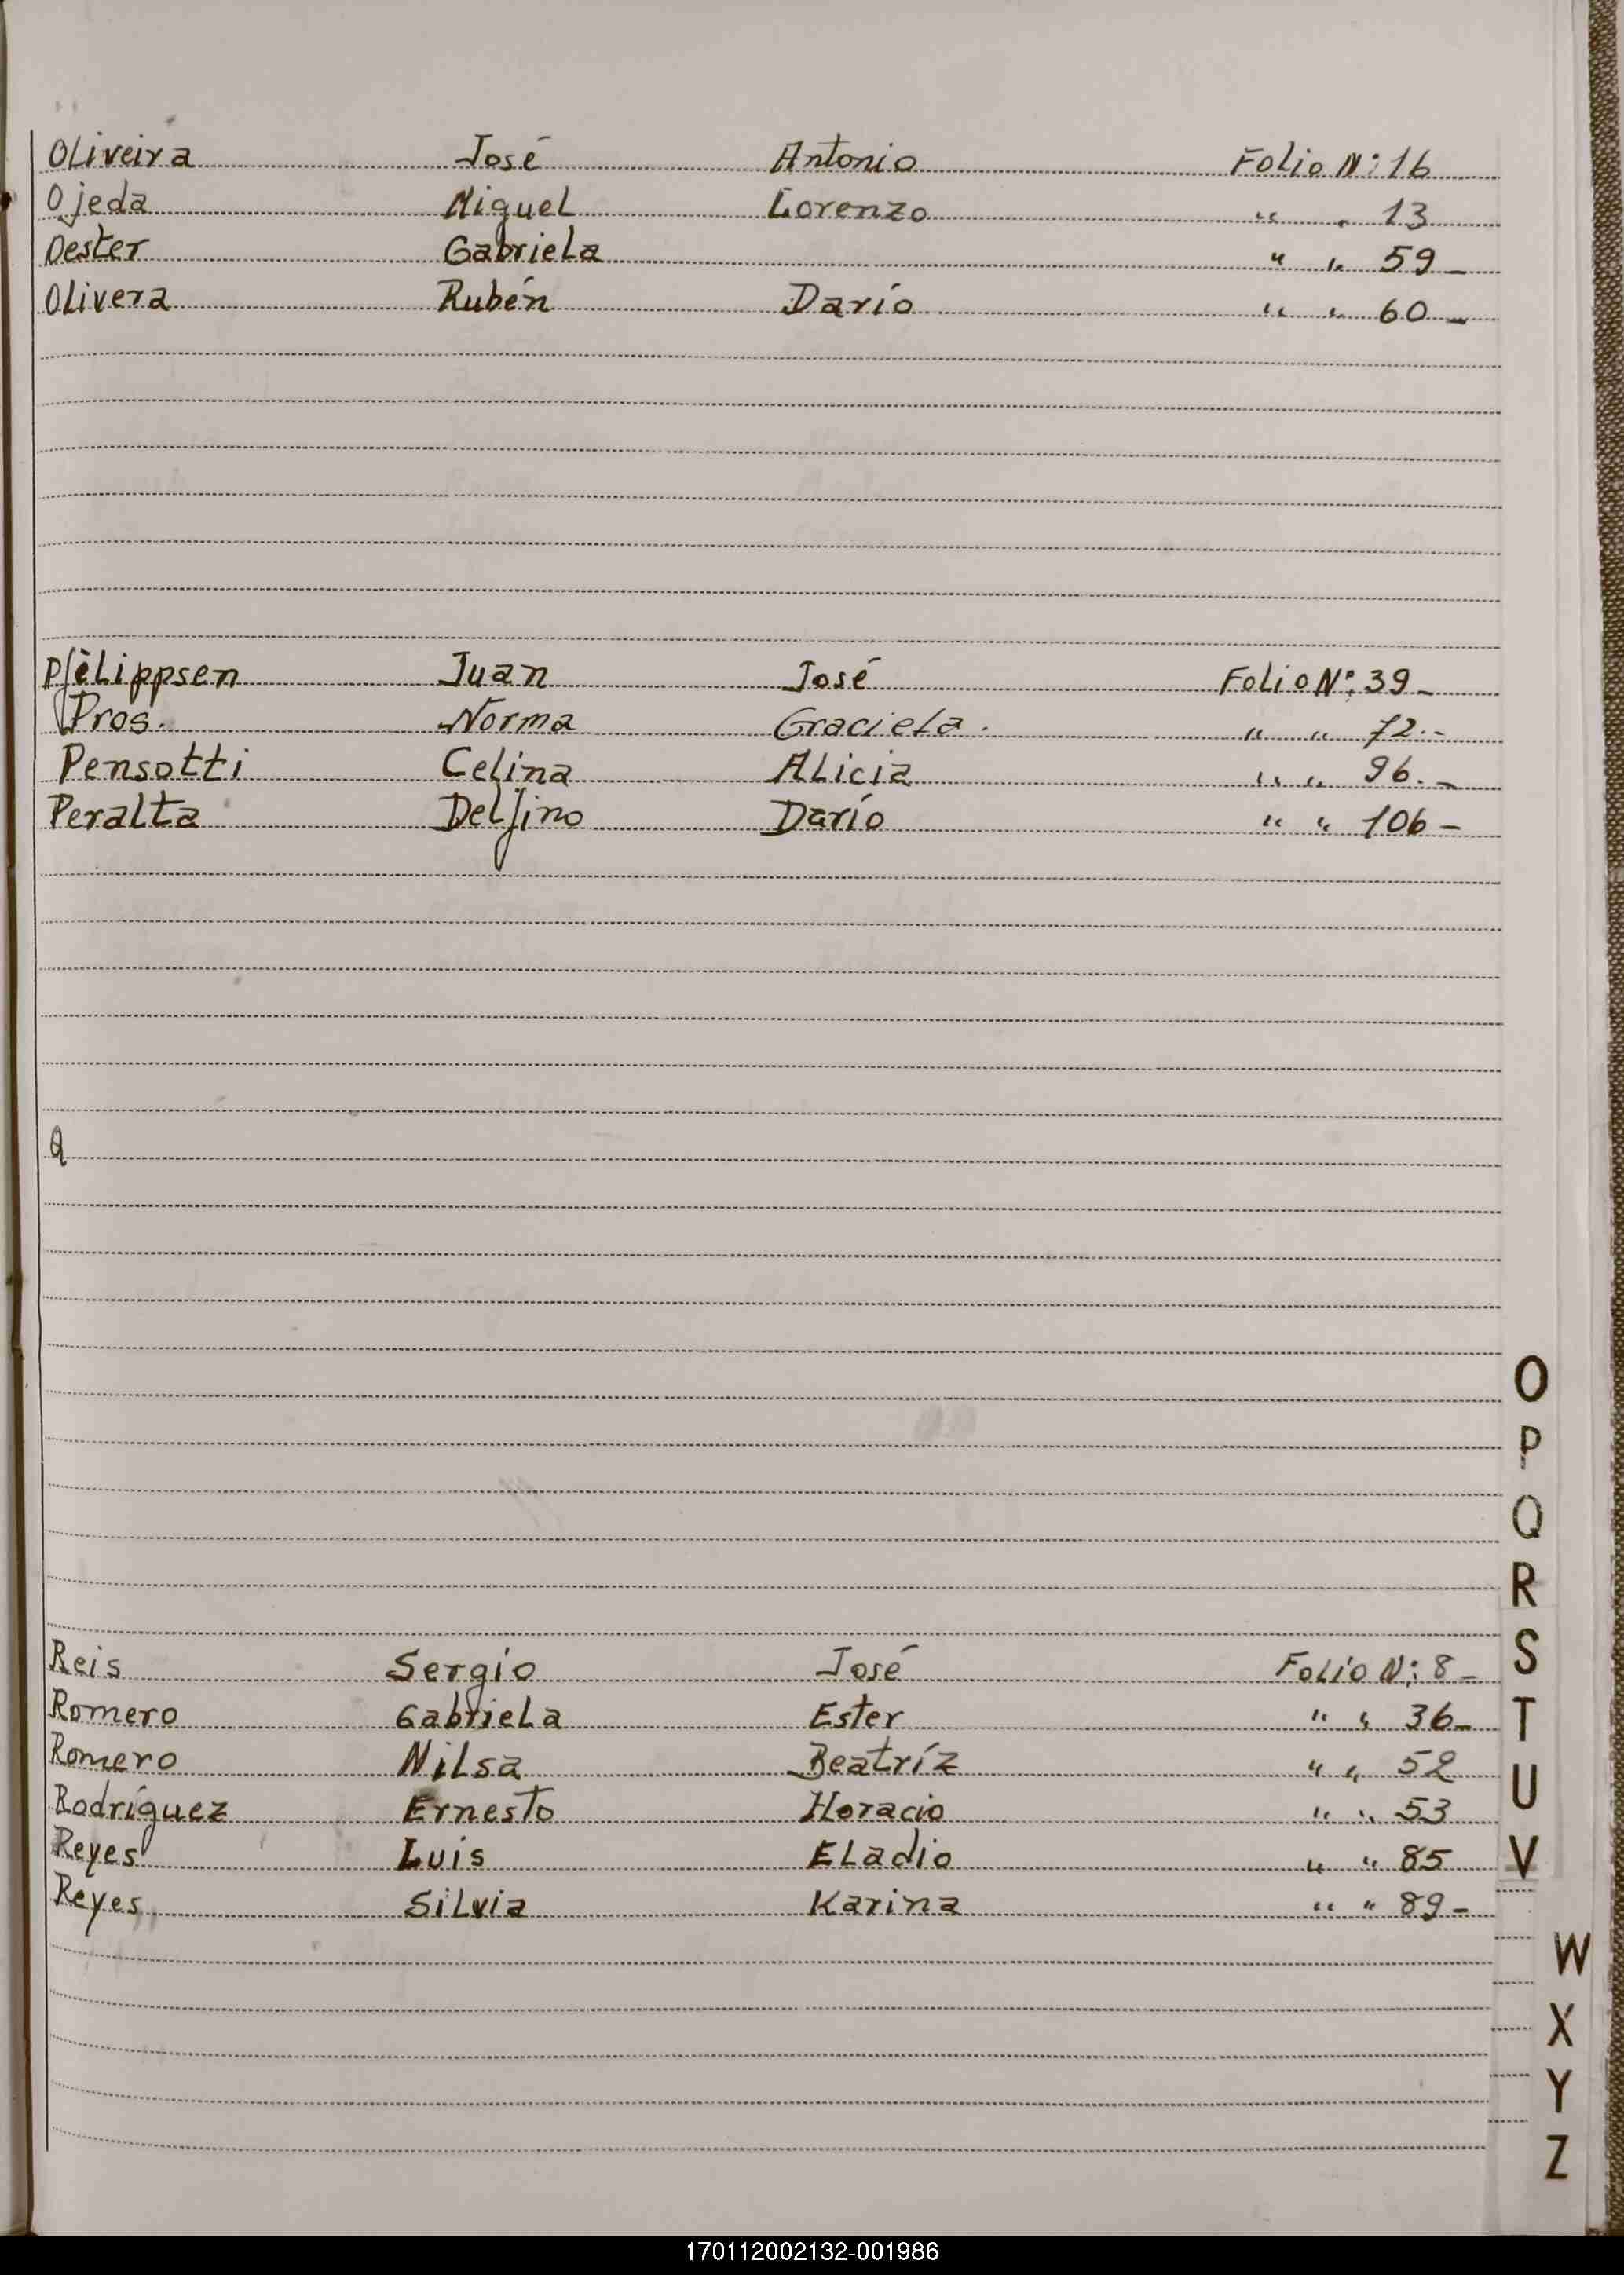 Oliveira José Antonio Folio N: 16
Ojeda Miguel Lorenzo " " 13
Oester Gabriela " " 59 -
Olivera Rubén Darío " " 60 -
Pfèlippsen Juan José Folio N: 39 -
Pros. Norma Graciela. " " 72.-
Pensotti Celina Alicia " " 96.-
Peralta Delfino Darío " " 106 -
Q
Reis Sergio José Folio N: 8 -
Romero Gabriela Ester " " 36 -
Romero Nilsa Beatríz " " 52
Rodríguez Ernesto Horacio " " 53
Reyes Luis Eladio " " 85
Reyes Silvia Karina " " 89 -
O
P
Q
R
S
T
U
V
W
X
Y
Z
170112002132-001986